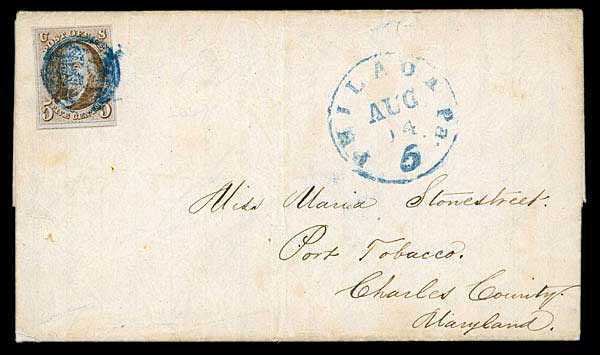 U S
POST OFFICE
5 FIVE CENTS 5
PHILADA Pa.
AUG
14
5
Miss Maria Stonestreet.
Port Tobacco.
Charles County.
Maryland.